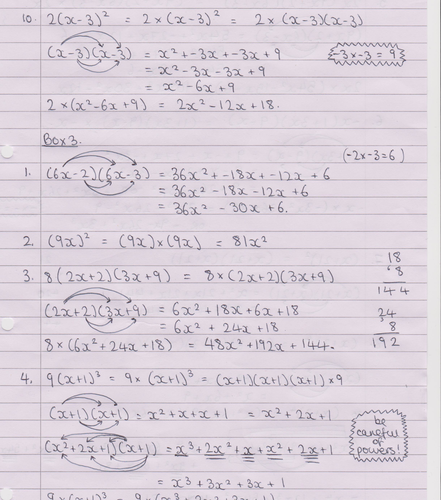 10. 2(x-3)² = 2×(x-3)² = 2×(x-3)(x-3)
(x-3)(x-3) = x²+-3x+-3x+9
-3×-3=9
= x²-3x-3x+9
= x²-6x+9
2×(x²-6x+9) = 2x²-12x+18.
Box 3.
(-2×-3=6)
1. (6x-2)(6x-3) = 36x²+-18x+-12x+6
= 36x²-18x-12x+6
= 36x²-30x+6.
2. (9x)² = (9x)×(9x) = 81x²
3. 8(2x+2)(3x+9) = 8×(2x+2)(3x+9)
18
8
144
(2x+2)(3x+9) = 6x²+18x+6x+18
= 6x²+24x+18
8×(6x²+24x+18) = 48x²+192x+144.
24
8
192
4. 9(x+1)³ = 9×(x+1)³ = (x+1)(x+1)(x+1)×9
(x+1)(x+1) = x²+x+x+1 = x²+2x+1
be careful of powers!
(x²+2x+1)(x+1) = x³+2x²+x+x²+2x+1
= x³+3x²+3x+1